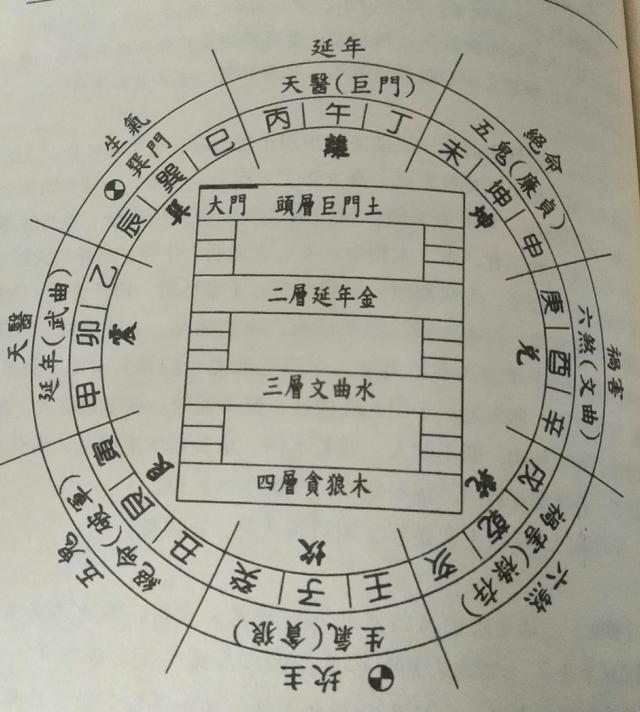 延年
天醫(巨門)
丙 午 丁
離
絕命
五鬼(廉貞)
未 坤 申
坤
禍害
六煞(文曲)
庚 酉 辛
兌
六煞
禍害(祿存)
戌 乾 亥
乾
坎主
生氣(貪狼)
壬 子 癸
坎
五鬼
絕命(破軍)
丑 艮 寅
艮
天醫
延年(武曲)
甲 卯 乙
震
生氣
巽門
辰 巽 巳
巽
大門 頭層巨門土
二層延年金
三層文曲水
四層貪狼木